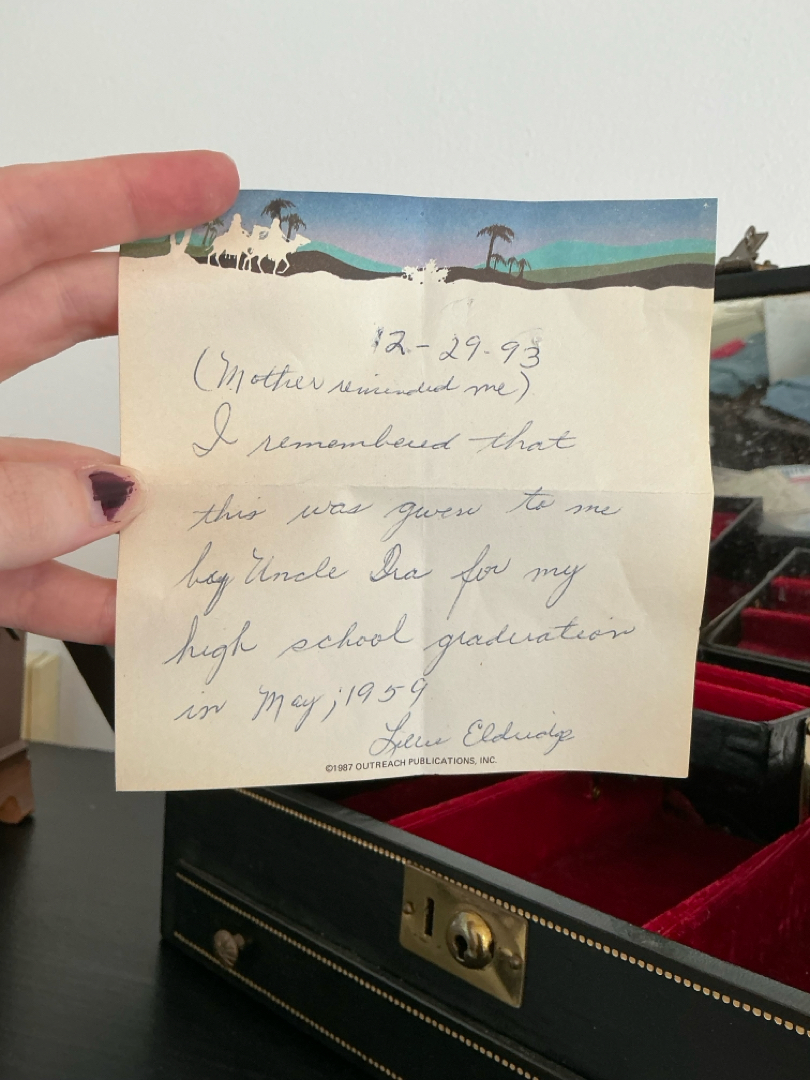 12-29-93
(Mother reminded me)
I remembered that
this was given to me
by Uncle Ira for my
high school graduation
in May, 1959
Eldridge
©1987 OUTREACH PUBLICATIONS, INC.